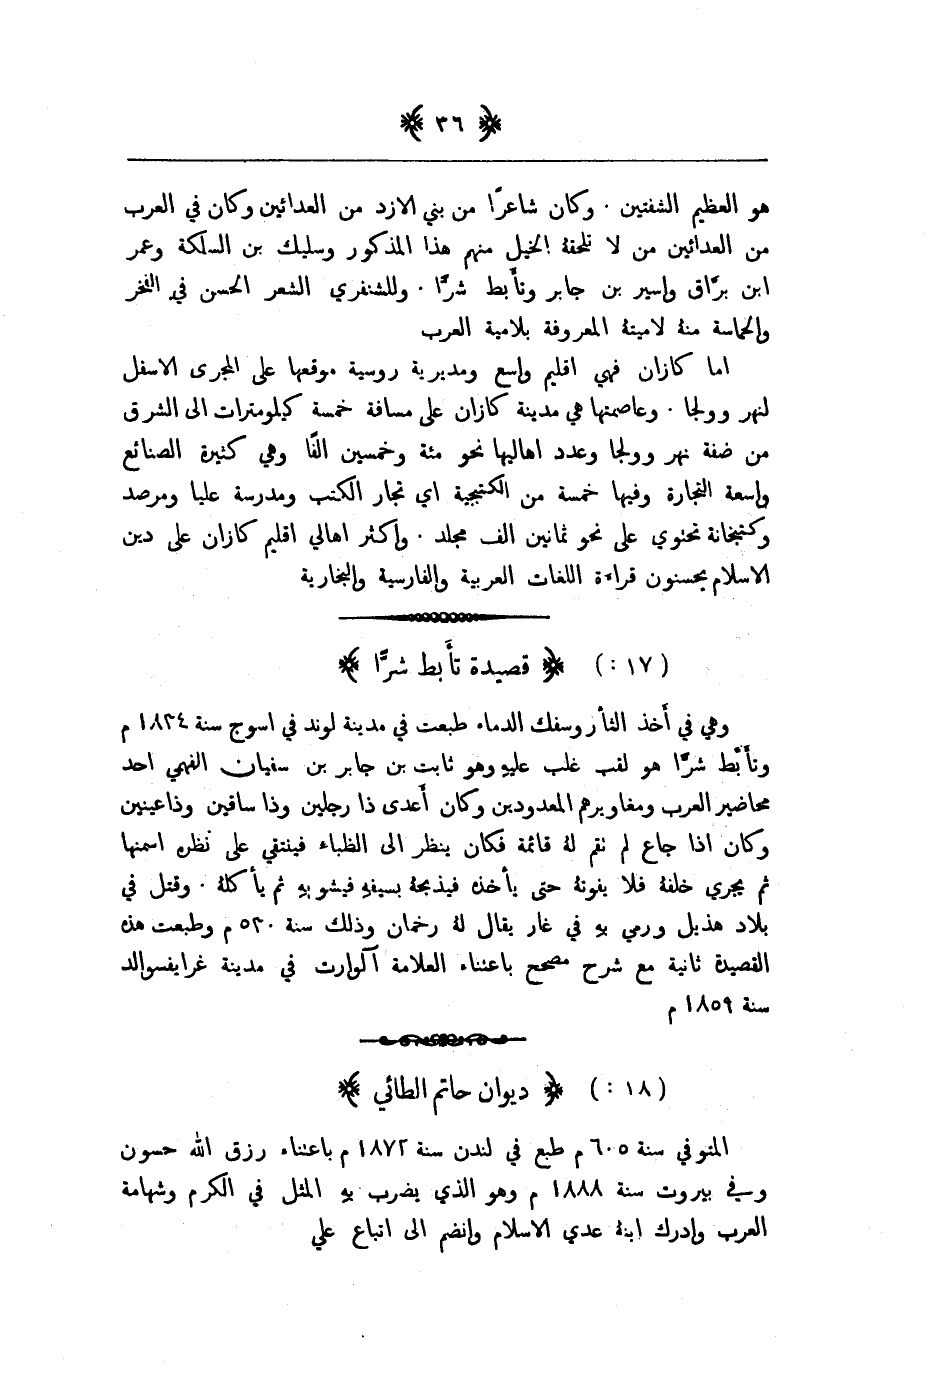 ﴿ ٣٦ ﴾
هو العظيم الشفتين · وكان شاعرًا من بني الازد من العدائين وكان في العرب
من العدائين من لا تلحقهُ الخيل منهم هذا المذكور وسليك بن السلكة وعمر
ابن برّاق واسير بن جابر وتأَبط شرًّا · وللشنفري الشعر الحسن في الفخر
والحماسة منهُ لاميتهُ المعروفة بلامية العرب
اما كازان فهي اقليم واسع ومديرية روسية موقعها على المجرى الاسفل
لنهر وولجا · وعاصمتها هي مدينة كازان على مسافة خمسة كيلومترات الى الشرق
من ضفة نهر وولجا وعدد اهاليها نحو مئة وخمسين الفًا وهي كثيرة الصنائع
واسعة التجارة وفيها خمسة من الكتبجية اي تجار الكتب ومدرسة عليا ومرصد
وكتبخانة تحتوي على نحو ثمانين الف مجلد · واكثر اهالي اقليم كازان على دين
الاسلام يحسنون قراءة اللغات العربية والفارسية والبخارية
(١٧ :) ﴿ قصيدة تأَبط شرًّا ﴾
وهي في أَخذ الثأر وسفك الدماء طبعت في مدينة لوند في اسوج سنة ١٨٣٤ م
وتأَبَّط شرًّا هو لقب غلب عليهِ وهو ثابت بن جابر بن سفيان الفهمي احد
محاضير العرب ومغاويرهم المعدودين وكان أَعدى ذا رجلين وذا ساقين وذا عينين
وكان اذا جاع لم تقم لهُ قائمة فكان ينظر الى الظباء فينتقي على نظره اسمنها
ثم يجري خلفهُ فلا يفوتهُ حتى يأخذه فيذبحهُ بسيفهِ فيشويهِ ثم يأكلهُ · وقتل في
بلاد هذيل ورمي بهِ في غار يقال لهُ رخمان وذلك سنة ٥٣٠ م وطبعت هذه
القصيدة ثانية مع شرح مصحح باعتناء العلامة آلوارت في مدينة غرايفسوالد
سنة ١٨٥٩ م
(١٨ :) ﴿ ديوان حاتم الطائي ﴾
المتوفي سنة ٦٠٥ م طبع في لندن سنة ١٨٧٢ م باعتناء رزق الله حسون
وفي بيروت سنة ١٨٨٨ م وهو الذي يضرب بهِ المثل في الكرم وشهامة
العرب وادرك ابنهُ عدي الاسلام وانضم الى اتباع علي